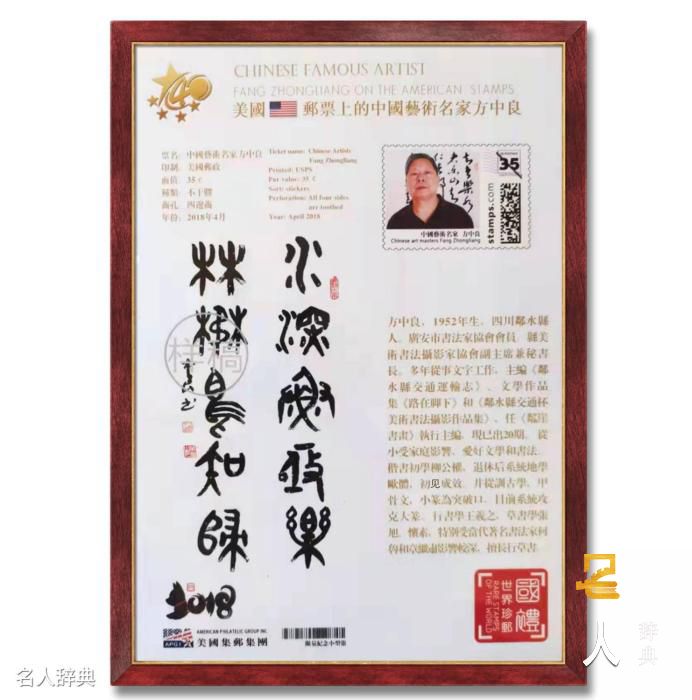 40
CHINESE FAMOUS ARTIST
FANG ZHONGLIANG ON THE AMERICAN STAMPS
美國 郵票上的中國藝術名家方中良
票名:中國藝術名家方中良
印制:美國郵政
面值:35 ¢
種類:不干膠
齒孔:四邊齒
年份:2018年4月
Ticket name: Chinese Artists
Fang Zhongliang
Printed: USPS
Par value: 35 ¢
Sort: stickers
Perforation: All four sides
are toothed
Year: April 2018
35
stamps.com
中國藝術名家 方中良
Chinese art masters Fang Zhongliang
水深魚極樂
林茂鳥知歸
样稿
2018
方中良,1952年生,四川鄰水縣
人。廣安市書法家協會會員,縣美
術書法攝影家協會副主席兼秘書
長。多年從事文字工作,主編《鄰
水縣交通運輸志》、文學作品
集《路在脚下》和《鄰水縣交通杯
美術書法攝影作品集》、任《鄰崖
書畫》執行主編,現已出20期。從
小受家庭影響,愛好文學和書法。
楷書初學柳公權,退休后系統地學
歐體,初见成效。并從訓古學,甲
骨文,小篆為突破口,目前系統攻
克大篆。行書學王羲之,草書學張
旭、懷素,特別受當代著名書法家何
錚和章繼肅影響較深,擅長行草書。
APGI
AMERICAN PHILATELIC GROUP INC
美國集郵集團
限量紀念小型張
國禮
世界珍郵
RARE STAMPS
OF THE WORLD
名人辞典
人
辞典